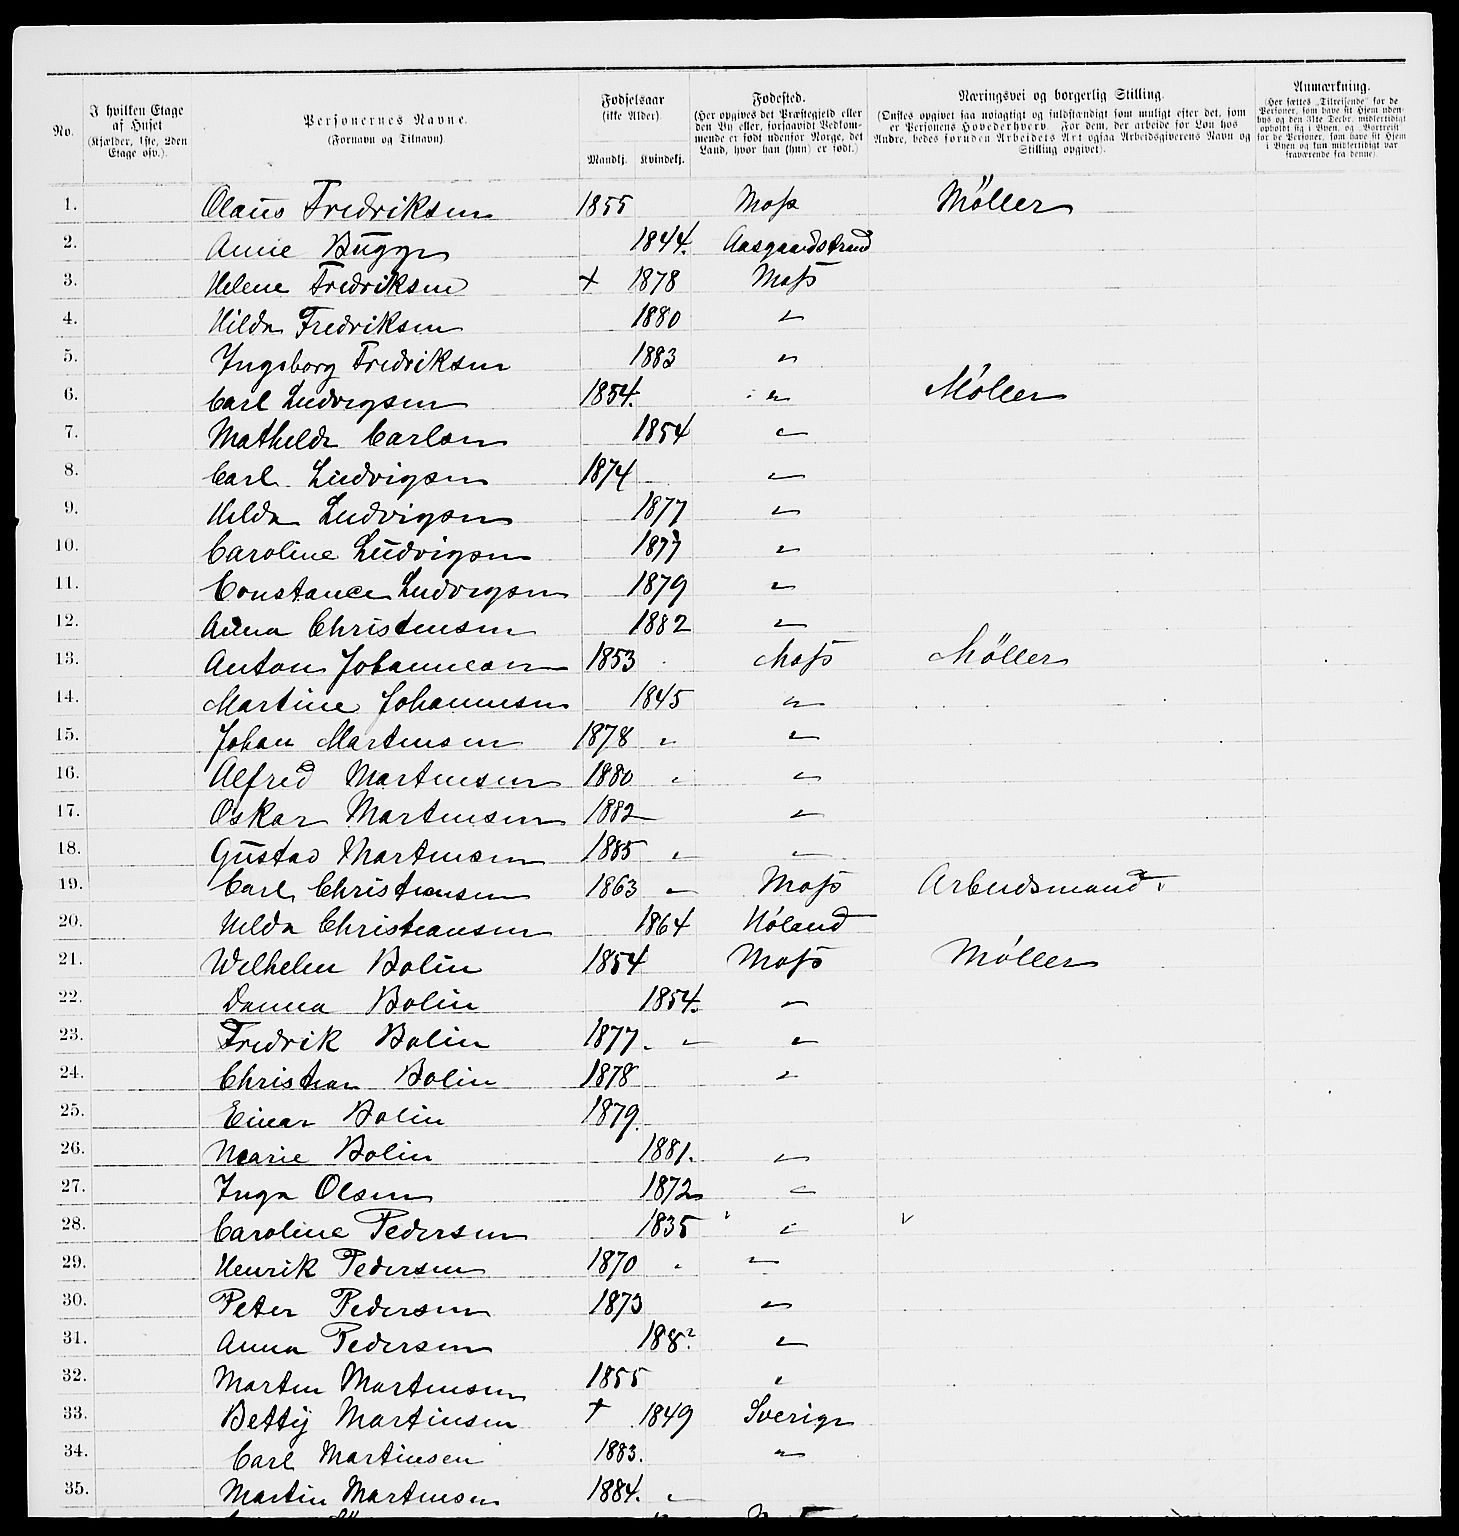 No.
I hvilken Etage af Huset (Kjælder, 1ste, 2den Etage osv.).
Personernes Navne. (Fornavn og Tilnavn).
Fødselsaar (ikke Alder). Mandkj. Kvindekj.
Fødested. (Her opgives det Præstegjeld eller den By eller, forsaavidt Vedkommende er født udenfor Norge, det Land, hvor han (hun) er født.)
Næringsvei og borgerlig Stilling. (Ønskes opgivet saa nøiagtigt og fuldstændigt som muligt efter det, som er Personens Hovederhverv. For dem, der arbeide for Løn hos Andre, bedes foruden Arbeidets Art ogsaa Arbeidsgiverens Navn og Stilling opgivet).
Anmærkning. (Her sættes „Tilreisende" for de Personer, som have sit Hjem udenbys og den 31te Decbr. midlertidigt opholdt sig i Byen, og „Bortreist" for de Personer, som have sit Hjem i Byen og kun midlertidigt var fraværende fra denne).
1. Olaus Fredriksen 1855 Moss Møller
2. Anne Bugge 1844. Aasgaardstrand
3. Helene Fredriksen + 1878 Moss
4. Hilda Fredriksen 1880 "
5. Ingeborg Fredriksen 1883 "
6. Carl Ludvigsen 1854. " Møller
7. Mathilde Carlsen 1854 "
8. Carl Ludvigsen 1874 "
9. Hilda Ludvigsen 1877 "
10. Caroline Ludvigsen 1877 "
11. Constance Ludvigsen 1879 "
12. Anna Christensen 1882 "
13. Anton Johannesen 1853 Moss Møller
14. Martine Johannesen 1845 "
15. Johan Martensen 1878 " "
16. Alfred Martensen 1880 " "
17. Oskar Martensen 1882 "
18. Gustav Martensen 1885 " "
19. Carl Christiansen 1863 " Moss Arbeidsmand
20. Hilda Christiansen 1864 Høland
21. Wilhelm Bolin 1854 Moss Møller
22. Danna Bolin 1854. "
23. Fredrik Bolin 1877. " "
24. Christian Bolin 1878 "
25. Einar Bolin 1879.
26. Marie Bolin 1881. "
27. Inga Olsen 1872 "
28. Caroline Pedersen 1835 "
29. Henrik Pedersen 1870 " "
30. Peter Pedersen 1873 "
31. Anna Pedersen 188? "
32. Martin Martinsen 1855 "
33. Betty Martinsen + 1849 Sverige
34. Carl Martinsen 1883. "
35. Martin Martinsen 1884. "